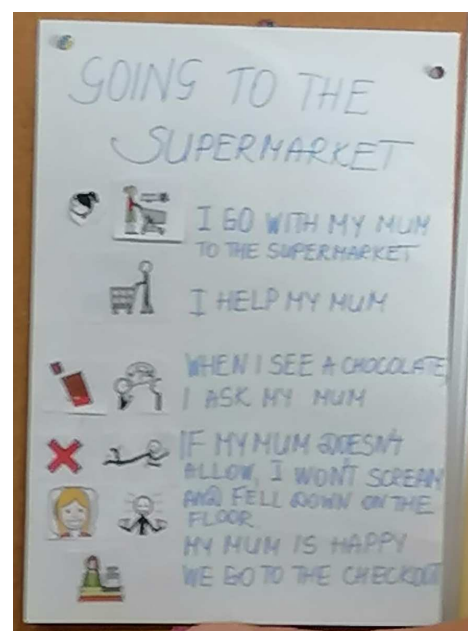 GOING TO THE
SUPERMARKET
I GO WITH MY MUM
TO THE SUPERMARKET
I HELP MY MUM
WHEN I SEE A CHOCOLATE,
I ASK MY MUM
IF MY MUM DOESN'T
ALLOW, I WON'T SCREAM
AND FELL DOWN ON THE
FLOOR.
MY MUM IS HAPPY
WE GO TO THE CHECKOUT